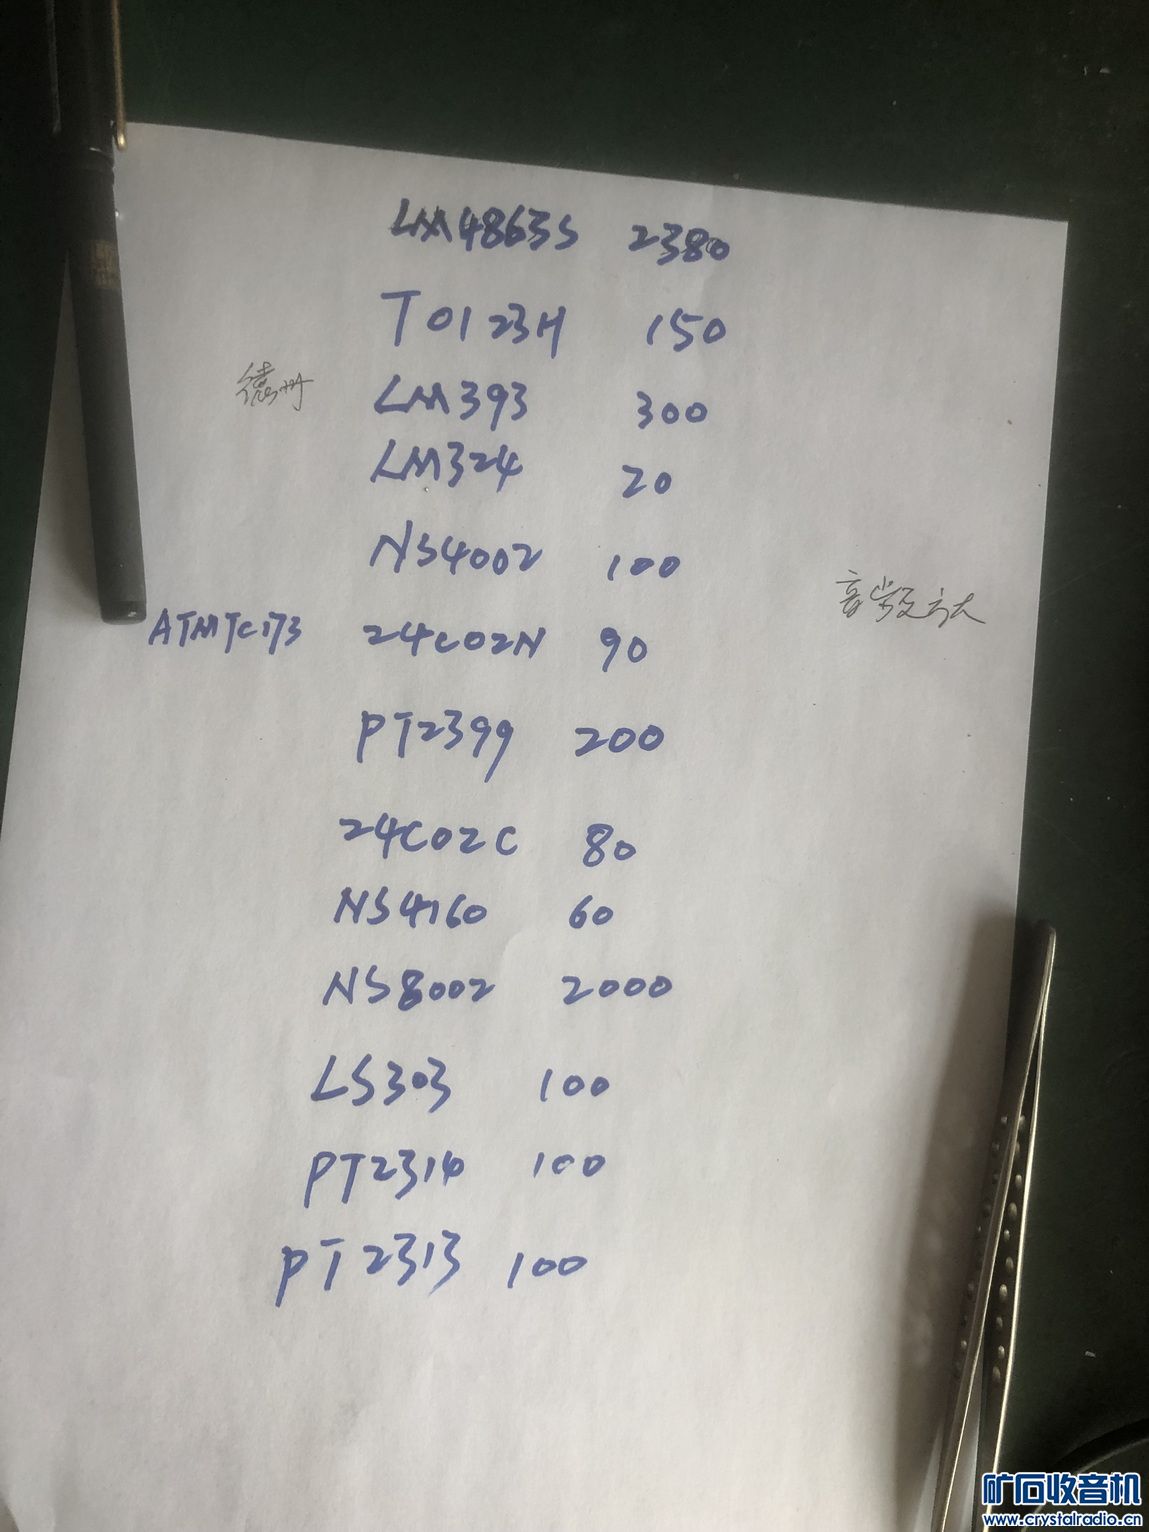 LM4863S 2380
T0123H 150
德州 LM393 300
LM324 20
NS4002 100
ATMTC173 24C02N 90
PT2399 200
24C02C 80
NS4160 60
NS8002 2000
LS303 100
PT2314 100
PT2313 100
矿石收音机
www.crystalradio.cn